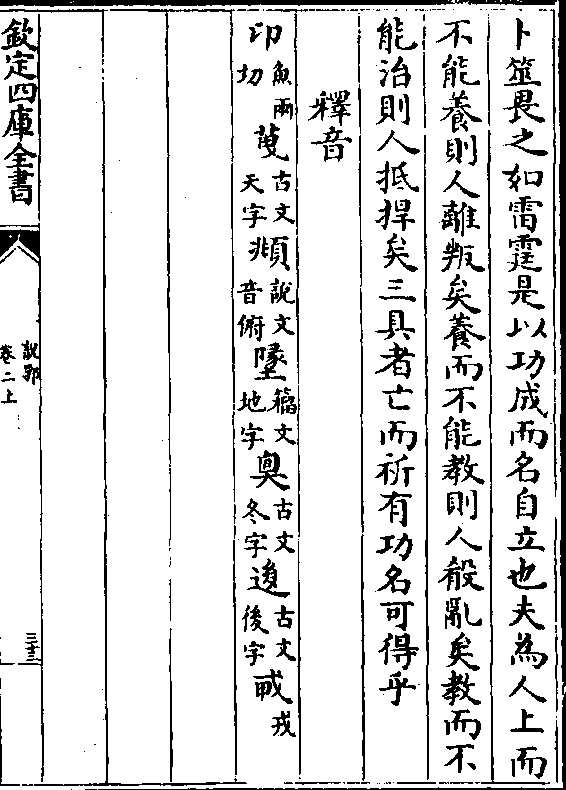 卜筮畏之如雷霆是以功成而名自立也夫為人上而
不能養則人離叛矣養而不能教則人殽亂矣教而不
能治則人抵捍矣三具者亡而祈有功名可得乎
釋音
卬魚兩切 古文天字 頫說文音俯 墬籀文地字 古文冬字 古文後字 戎
欽定四庫全書
說郛
卷二上
三十三